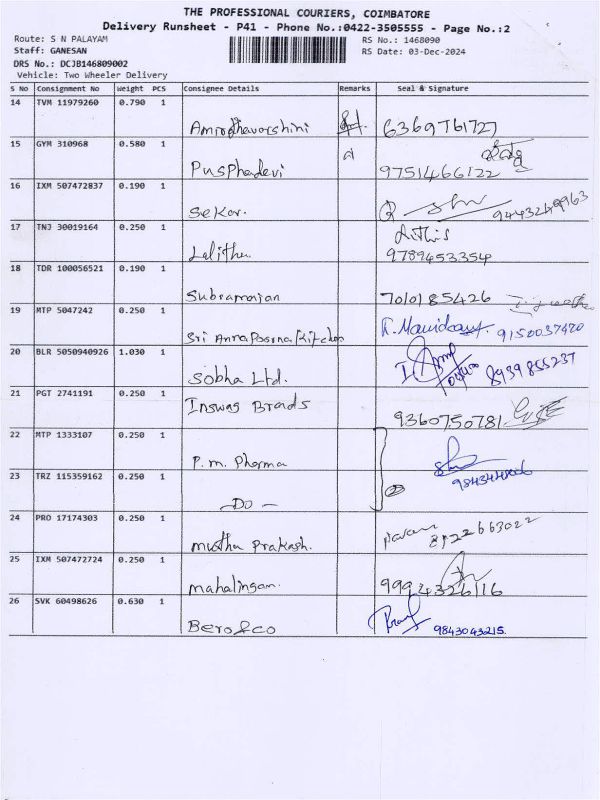 THE PROFESSIONAL COURIERS, COIMBATORE
Delivery Runsheet - P41 - Phone No.:0422-3505555 - Page No.:2
Route: S N PALAYAM
RS No.: 1468090
Staff: GANESAN
RS Date: 03-Dec-2024
DRS No.: DCJB146809002
Vehicle: Two Wheeler Delivery
S No Consignment No Weight PCS Consignee Details Remarks Seal & Signature
14 TVM 11979260 0.790 1
Amirthavarshini 6369761727
15 GYM 310968 0.580 1
Pusphadevi 9751466122
16 IXM 507472837 0.190 1
Sekar.
17 TNJ 30019164 0.250 1
Lalitha 9789453354
18 TDR 100056521 0.190 1
Subramanian 7010185426
19 MTP 5047242 0.250 1
Sri Annapoorna Kitchen 9150037420
20 BLR 5050940926 1.030 1
Sobha Ltd. 8939855237
21 PGT 2741191 0.250 1
Inswas Brands 9360750781
22 MTP 1333107 0.250 1
P.m. Pharma
23 TRZ 115359162 0.250 1
-DO- 2
24 PRO 17174303 0.250 1
Muthu Prakash. 8122663022
25 IXM 507472724 0.250 1
Mahalingam. 9994326116
26 SVK 60498626 0.630 1
Berofco 9843043215.